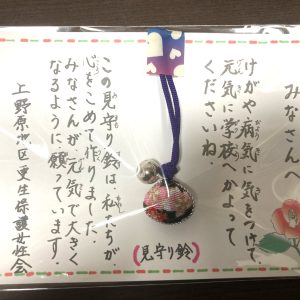 みなさんへ
けがや病気に気をつけて、
元気に学校へかよって
くださいね。
(見守り鈴)
この見守り鈴は私たちが、
心をこめて作りました。
みなさんが元気で大きく
なるように願っています。
上野原地区更生保護女性会